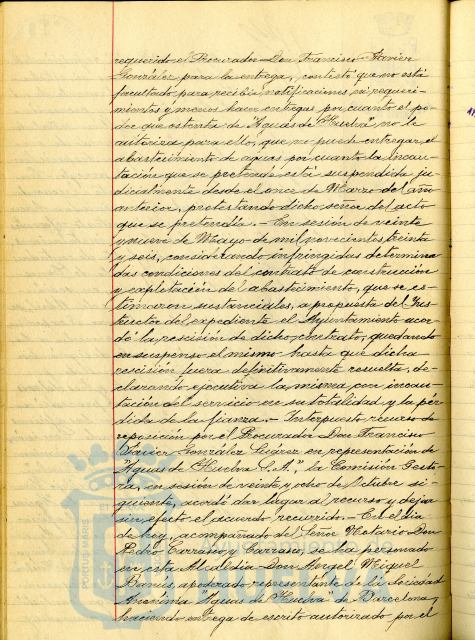 requerido el Procurador Don Francisco Javier
González para la entrega, contestó que no está
facultado para recibir notificaciones, ni requeri-
mientos y menos hacer entregas por cuanto el po-
der que ostenta de "Aguas de Huelva" no le
autoriza para ello, que no puede entregar el
abastecimiento de aguas por cuanto la incau-
tación que se pretende está suspendida ju-
dicialmente desde el once de Marzo del año
anterior, protestando dicho señor del acto
que se pretendía. - En sesión de veinte
y nueve de Mayo de mil novecientos treinta
y seis, considerando infringidas determina
das condiciones del contrato de construcción
y explotación del abastecimiento, que se es-
timaron sustanciales, a propuesta del Ins-
tructor del expediente el Ayuntamiento acor-
dó la rescisión de dicho contrato, quedando
en suspenso el mismo hasta que dicha
rescisión fuera definitivamente resuelta, de-
clarando ejecutiva la misma con incau-
tación del servicio en su totalidad y la pér-
dida de la fianza. - Interpuesto recurso de
reposición por el Procurador Don Francisco
Javier González Suárez en representación de
"Aguas de Huelva S.A.", la Comisión Gesto-
ra, en sesión de veinte y ocho de Octubre si-
guiente, acordó dar lugar al recurso y dejar
sin efecto el acuerdo recurrido. - En el día
de hoy, acompañado del Señor Notario Don
Pedro Carrasco y Carrasco, se ha personado
en esta Alcaldía Don Angel Miguel
apoderado representante de la Sociedad
Anónima "Aguas de Huelva" de Barcelona y
haciendo entrega de escrito autorizado por el
PORTUS MARIS